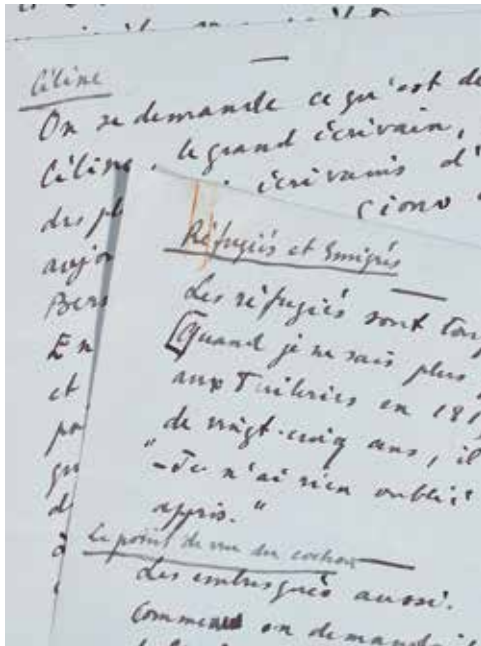 Céline
On se demande ce qu'est de
Céline, le grand écrivain,
écrivains d'
des pl
aujo
Bers
En
et
po
qu
d
à
Réfugiés et Emigrés
Les réfugiés sont tou
[Quand je ne sais plus
aux Tuileries en 181
de vingt-cinq ans, il
"-Je n'ai rien oublié
appris."
Le point de vue du cochon
Les embusqués aussi.
Comme on demandait